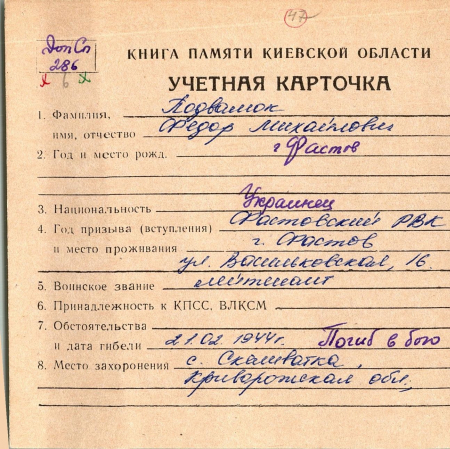 47
Доп Сп
286
х 6 х
КНИГА ПАМЯТИ КИЕВСКОЙ ОБЛАСТИ
УЧЕТНАЯ КАРТОЧКА
1. Фамилия, Подвамок
имя, отчество Федор Михайлович
2. Год и место рожд. г Фастов
3. Национальность Украинец
4. Год призыва (вступления) Фастовский РВК
и место проживания г. Фастов
ул. Васильковская, 16.
5. Воинское звание лейтенант
6. Принадлежность к КПСС, ВЛКСМ
7. Обстоятельства
и дата гибели 21.02 1944г. Погиб в бою
8. Место захоронения с. Скалеватка,
Криворожская обл,